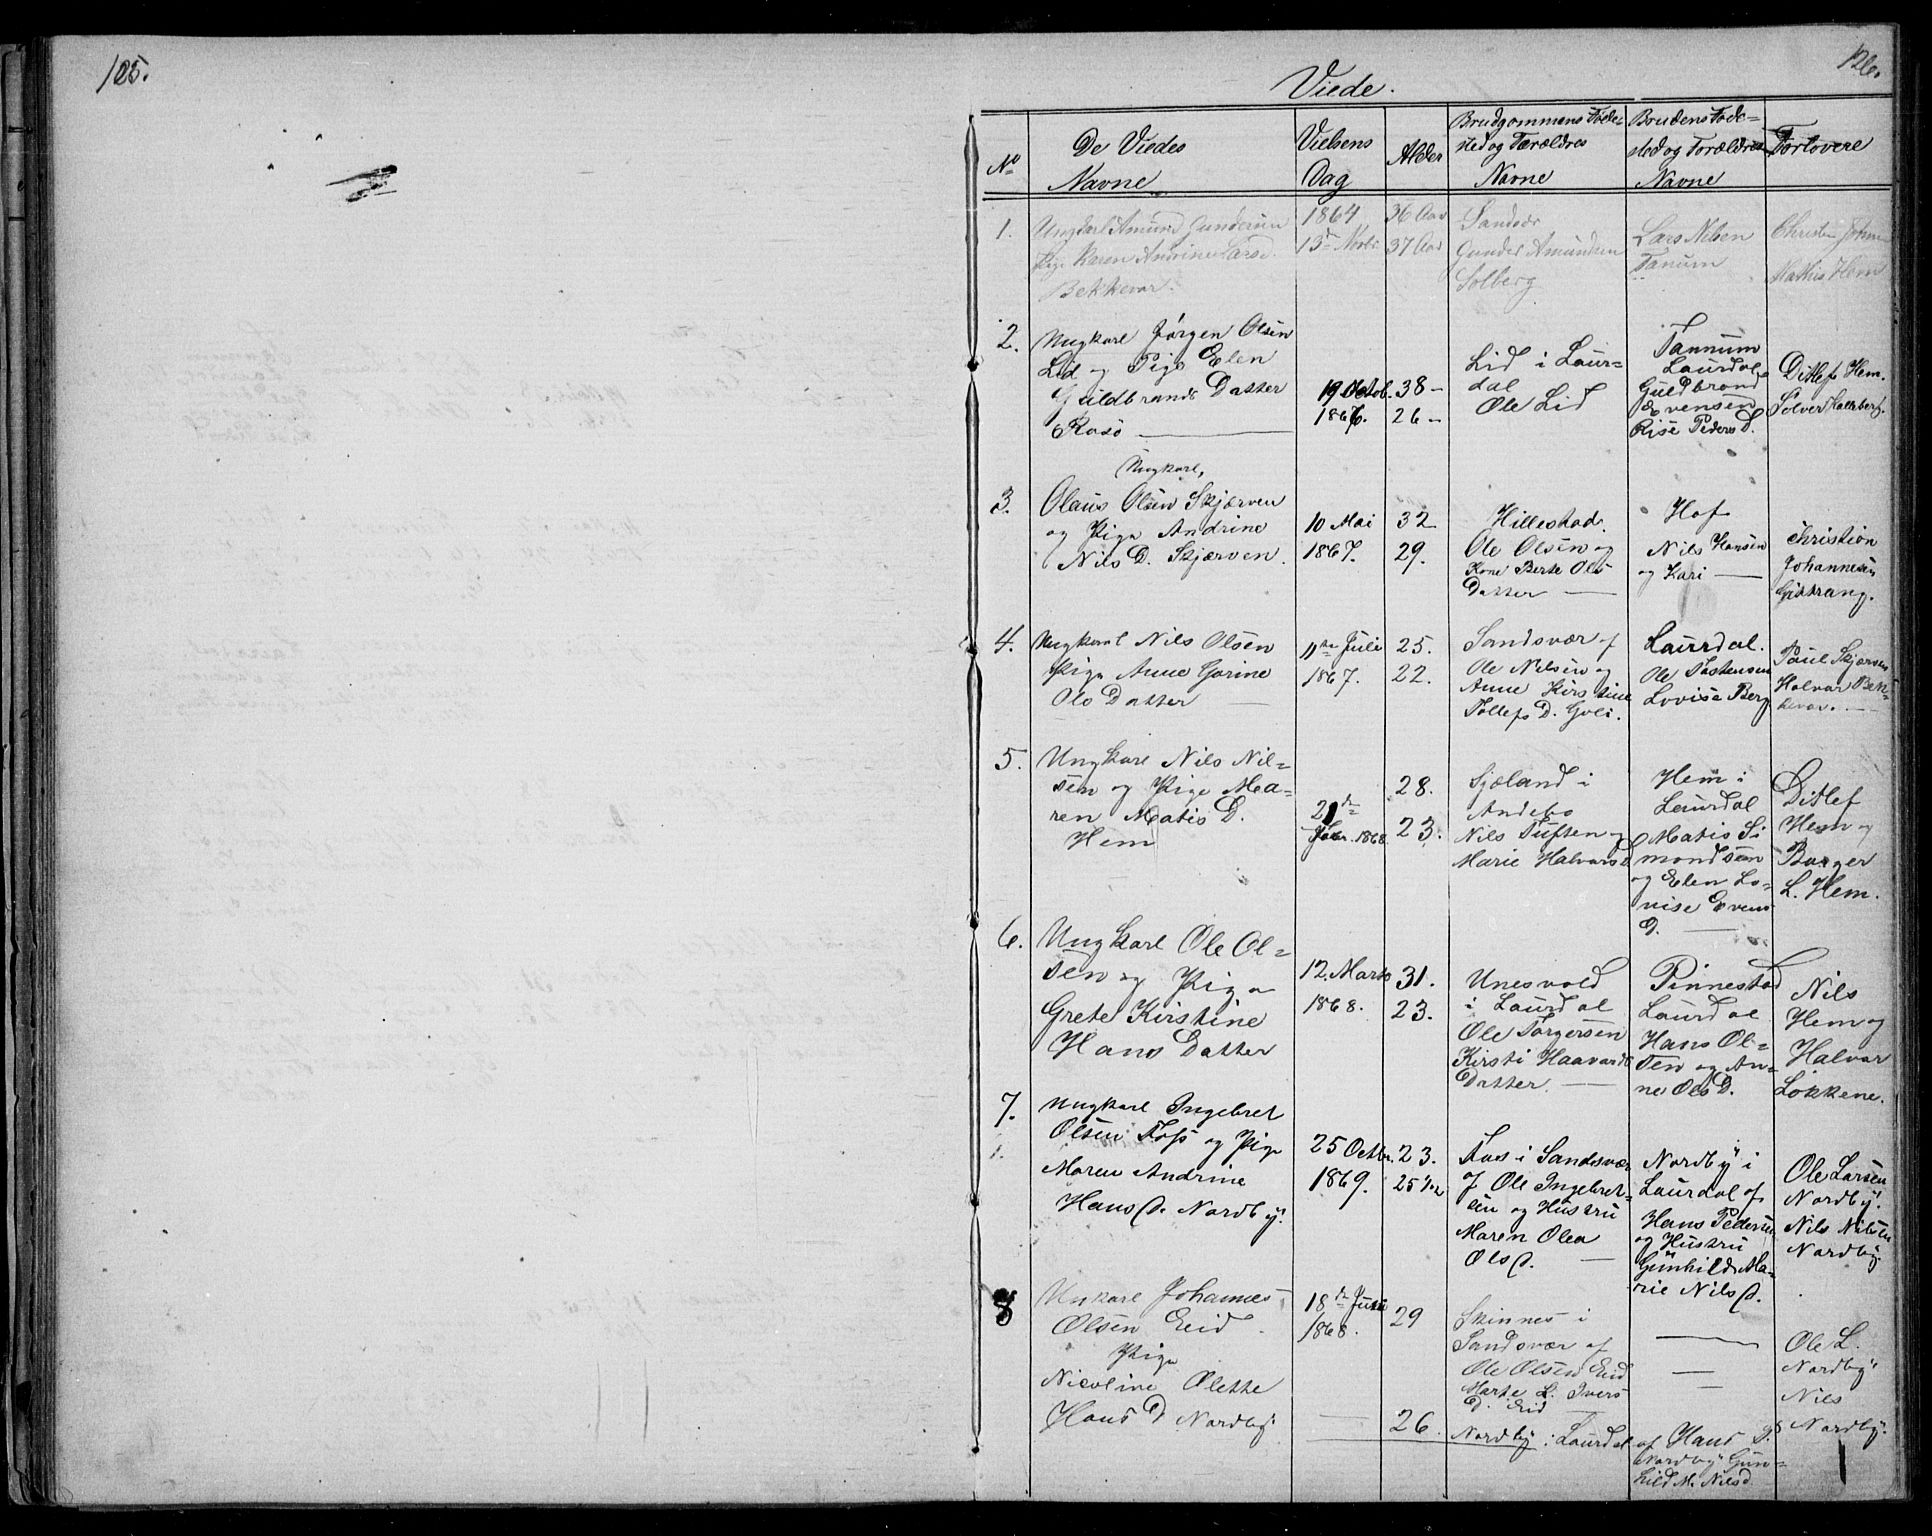 125.
126.
Viede.
No
De Viedes
Navne
Vielsens
Dag
Alder
Brudgommens Føde-
sted og Forældres
Navne
Brudens Føde-
sted og Forældres
Navne
Forlovere
1.
Ungkarl Amund Gundersen
Pige Karen Andrine Larsd.
Bekkevar.
1864
13de Novbr.
36 Aar
37 Aar
Sandsvær
Gunder Amundsen
Solberg
Lars Nilsen
Tanum
Christen Johan
Mathis Hem
2.
Ungkarl Jørgen Olsen
Lid og Pige Elen
Guldbrands Datter
Rasö
19 Octob.
1867.
38 –
26 –
Lid i Laur-
dal
Ole Lid
Tannum
Laurdal
Guldbrand
Evensen
Rise Peders D.
Ditlef Hem.
Sølver
3.
Ungkarl,
Olaus Olsen Skjærven
og Pige Andrine
Nils D. Skjærven.
10 Mai
1867.
32
29.
Hillestad.
Ole Olsen og
Kone Berte Ols
Datter
Hof
Nils Hansen
og Kari
Christian
Johannesen
Gittrang.
4.
Ungkarl Nils Olsen
Pige Anne Gorine
Ols Datter
11te Juli
1867.
25.
22.
Sandsvær af
Ole Nilsen og
Anne Kirstine
Tollefs D. Goli.
Laurdal.
Ole Tostensen
Lovise Berg
Paul Skjærven
Halvar Bek-
kevar.
5.
Ungkarl Nils Nil-
sen og Pige Ma-
ren Matis D.
Hem
21de
1868
28.
23.
Sjøland i
Andebo
Nils Tuften og
Marie Halvars D.
Hem i
Laurdal
Matis Si
mondsen
og Elen Lo-
vise Evens
D.
Ditlef
Hem og
Borger
L. Hem.
6.
Ungkarl Ole Ol-
sen og Pige
Grete Kirstine
Hans Datter
12. Marts
1868.
31.
23.
Unesvold
i Laurdal
Ole Torgersen
Kirsti Haavards
Datter
Pinnestad
Laurdal
Hans Ol-
sen og An-
ne Ols D.
Nils
Hem og
Halvar
Løkkene.
7.
Ungkarl Ingebret
Olsen Foss og Pige
Maren Andrine
Hans D. Nordby.
25 Octbr.
1869.
23.
25 1/2
Fos i Sandsvær
af Ole Ingebret-
sen og Hustru
Maren Olea
Ols D.
Nordby i
Laurdal af
Hans Pedersen
og Hustru
Gunhild Ma-
rie Nils D.
Ole Larsen
Nordby.
Nils Nilsen
Nordby.
8
Unkarl Johannes
Olsen Eid
Pige
Nicoline Olette
Hans D Nordby
18de Juni
1868.
29
26.
Skinnes i
Sandsvær af
Ole Olsen Eid
Marte L. Ivers
D. Eid
Nordby i Laurdal af Hans P.
Nordby Gun-
hild M. Nilsd.
Ole L.
Nordby
Nils
Nordby.